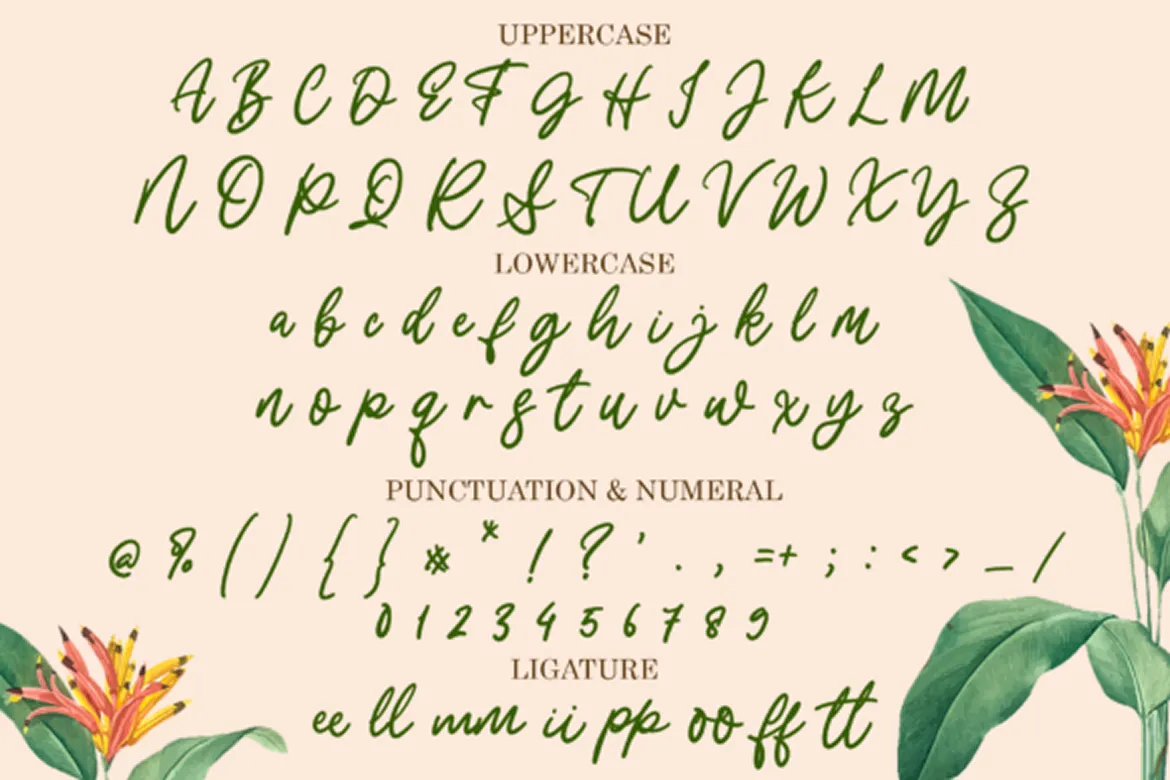 UPPERCASE
A B C D E F G H I J K L M
N O P Q R S T U V W X Y Z
LOWERCASE
a b c d e f g h i j k l m
n o p q r s t u v w x y z
PUNCTUATION & NUMERAL
@ % ( ) { } # * ! ? ' . , = + ; : < > _ /
0 1 2 3 4 5 6 7 8 9
LIGATURE
ee ll mm ii pp oo ff tt